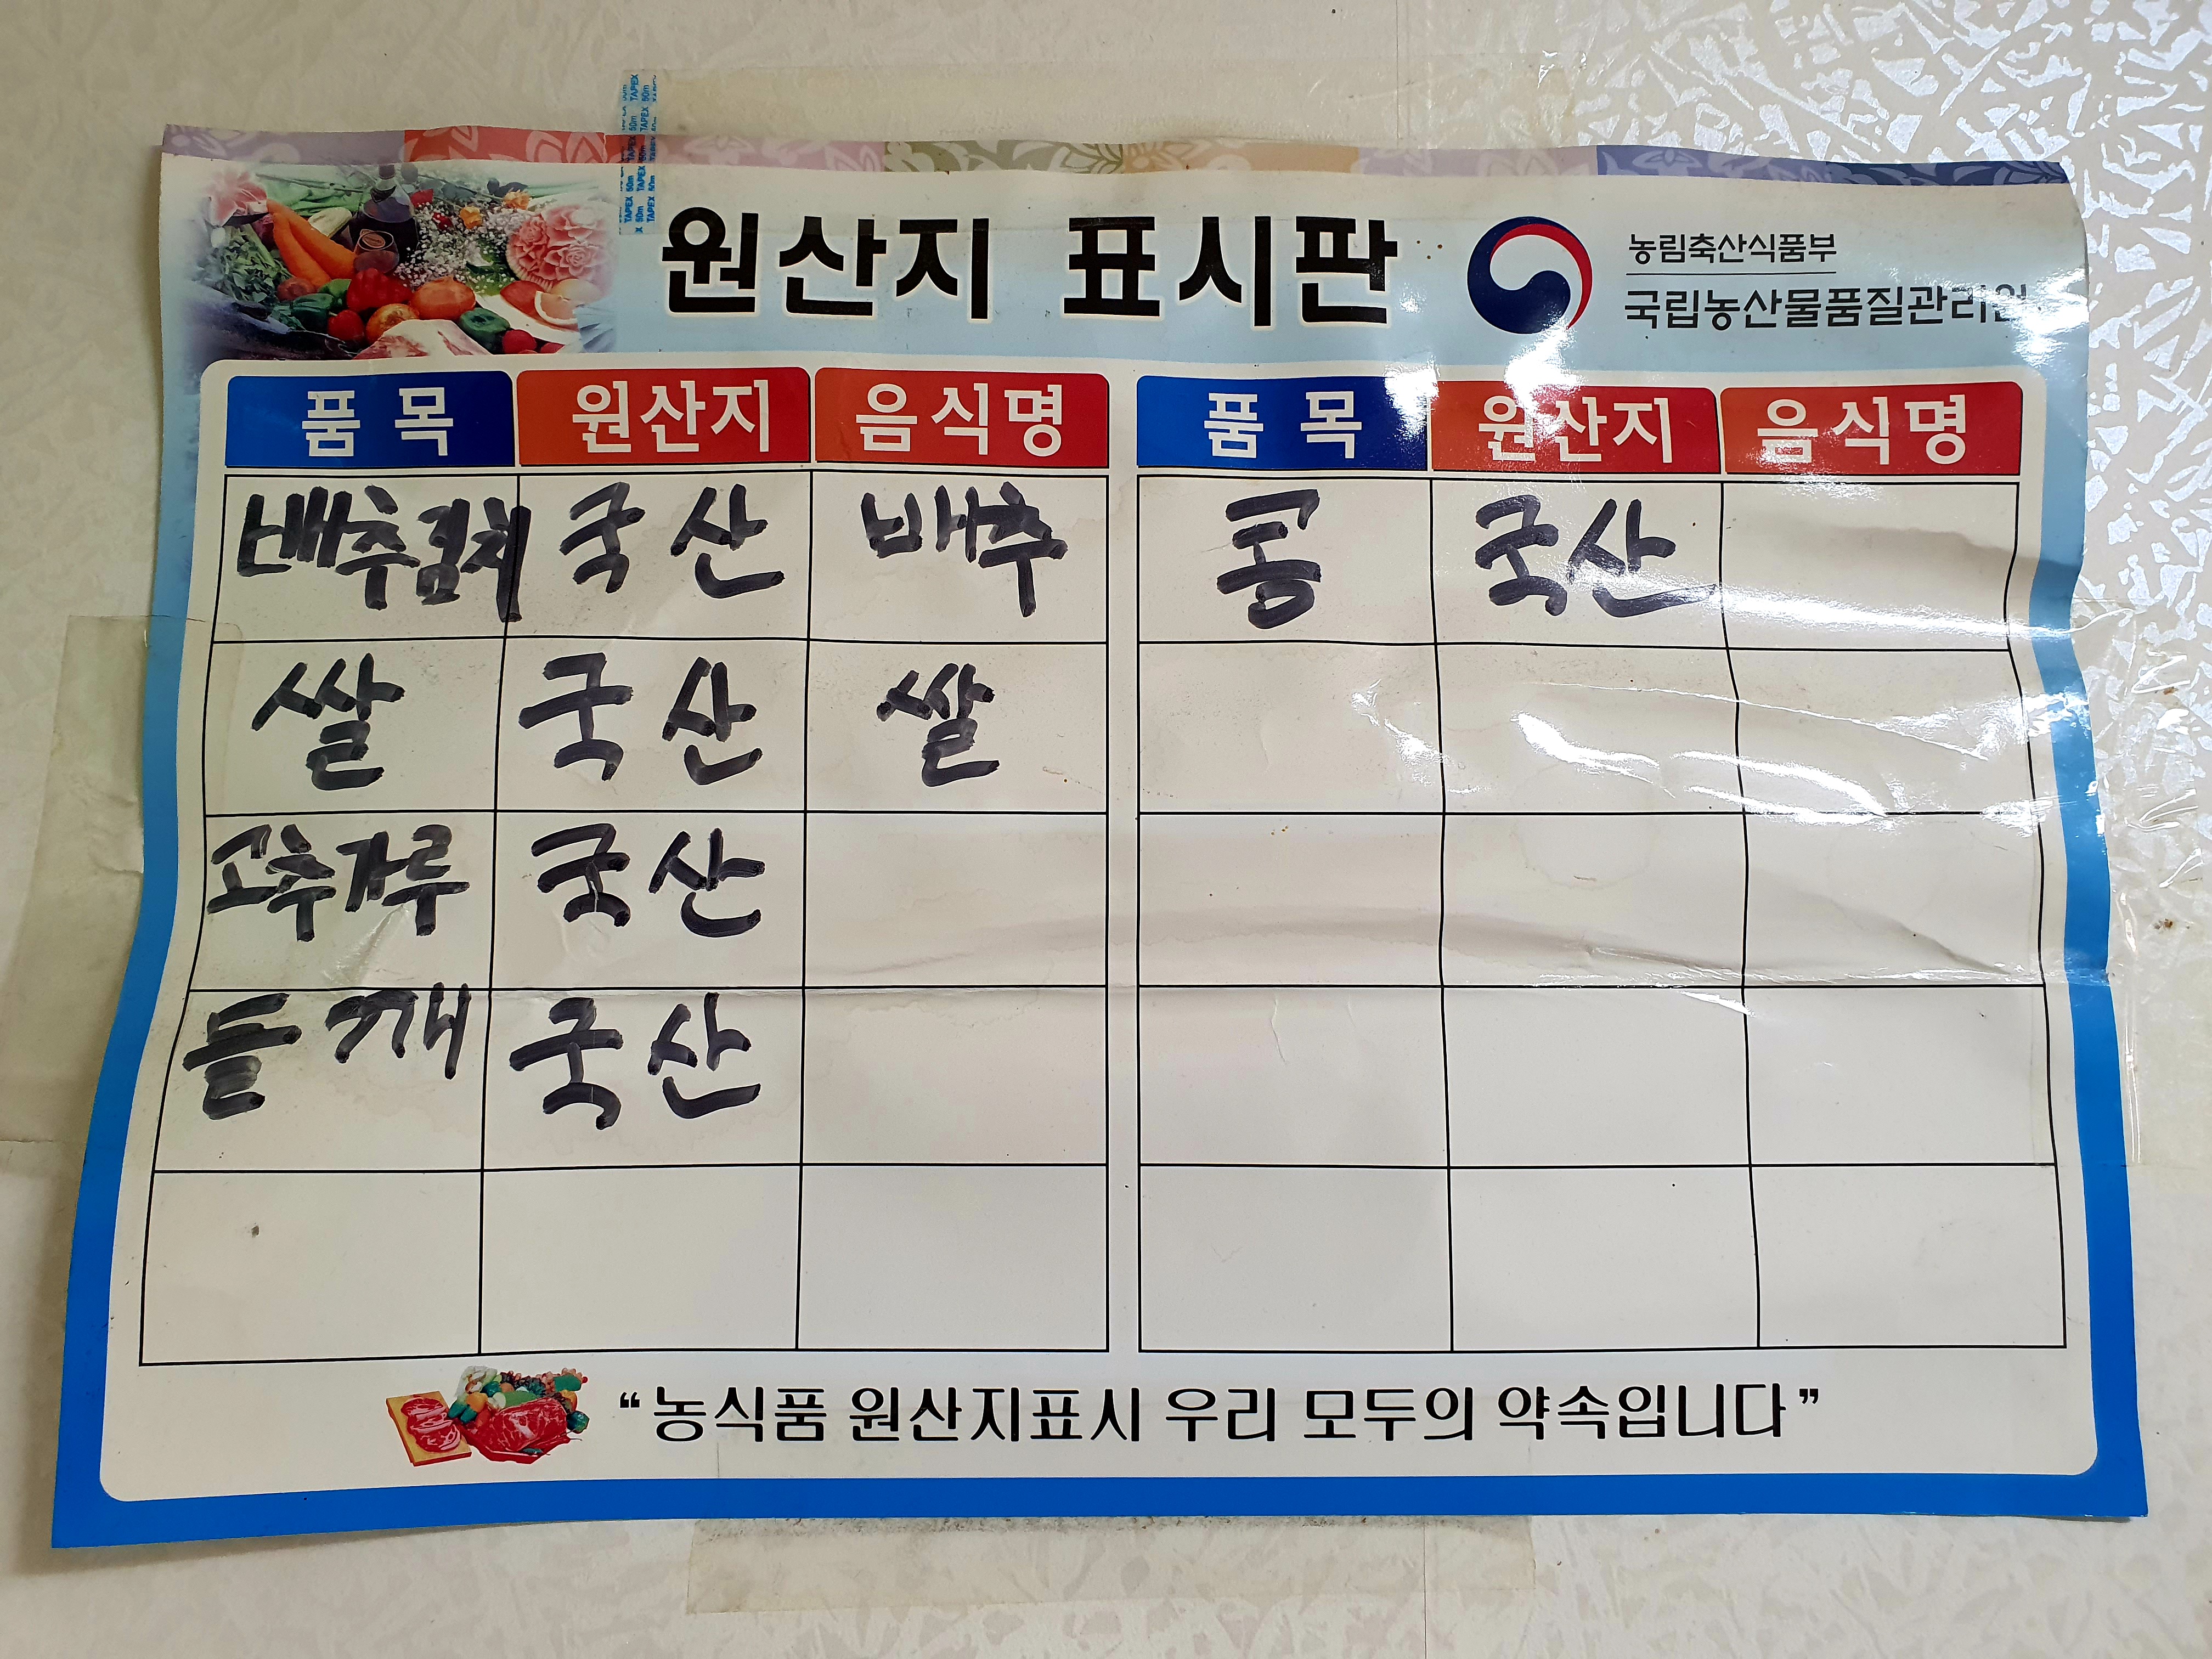 원산지 표시판
농림축산식품부
국립농산물품질관리원
품목 원산지 음식명 품목 원산지 음식명
배추김치 국산 배추 콩 국산
쌀 국산 쌀
고추가루 국산
들깨 국산
"농식품 원산지표시 우리 모두의 약속입니다"
TAPEX 50m TAPEX 50m TAPEX 50m